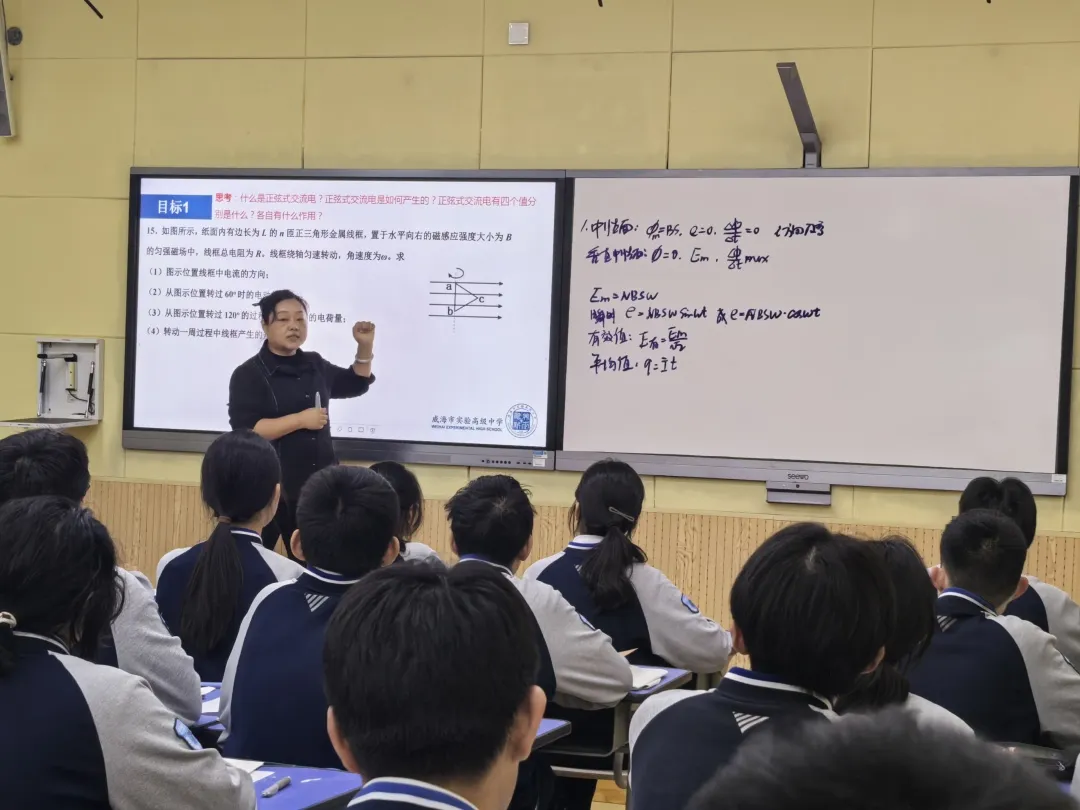 目标1
思考：什么是正弦式交流电？正弦式交流电是如何产生的？正弦式交流电有四个值分
别是什么？各自有什么作用？
15、如图所示，纸面内有边长为 L 的 n 匝正三角形金属线框，置于水平向右的磁感应强度大小为 B
的匀强磁场中，线框总电阻为 R，线框绕轴匀速转动，角速度为ω。求
（1）图示位置线框中电流的方向；
（2）从图示位置转过 60°时的电
（3）从图示位置转过 120°的过 的电荷量；
（4）转动一周过程中线框产生的
a
b
c
威海市实验高级中学
WEIHAI EXPERIMENTAL HIGH SCHOOL
1. 中性面: Φ=BS, e=0, ΔΦ/Δt=0
垂直中性面: Φ=0, Em, ΔΦ/Δt max
Em=NBSω
瞬时 e=NBSω sinωt 或 e=NBSω·cosωt
有效值: E有=Em/√2
平均值, q=It
seewo